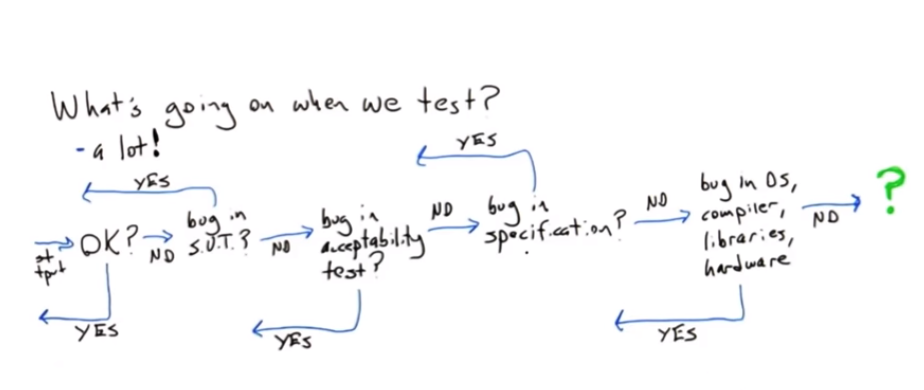 What's going on when we test?
- a lot!
YES
YES
OK?
NO
bug in
S.U.T.?
NO
bug in
acceptability
test?
NO
bug in
specification?
NO
bug in OS,
compiler,
libraries,
hardware
NO
?
YES
YES
YES